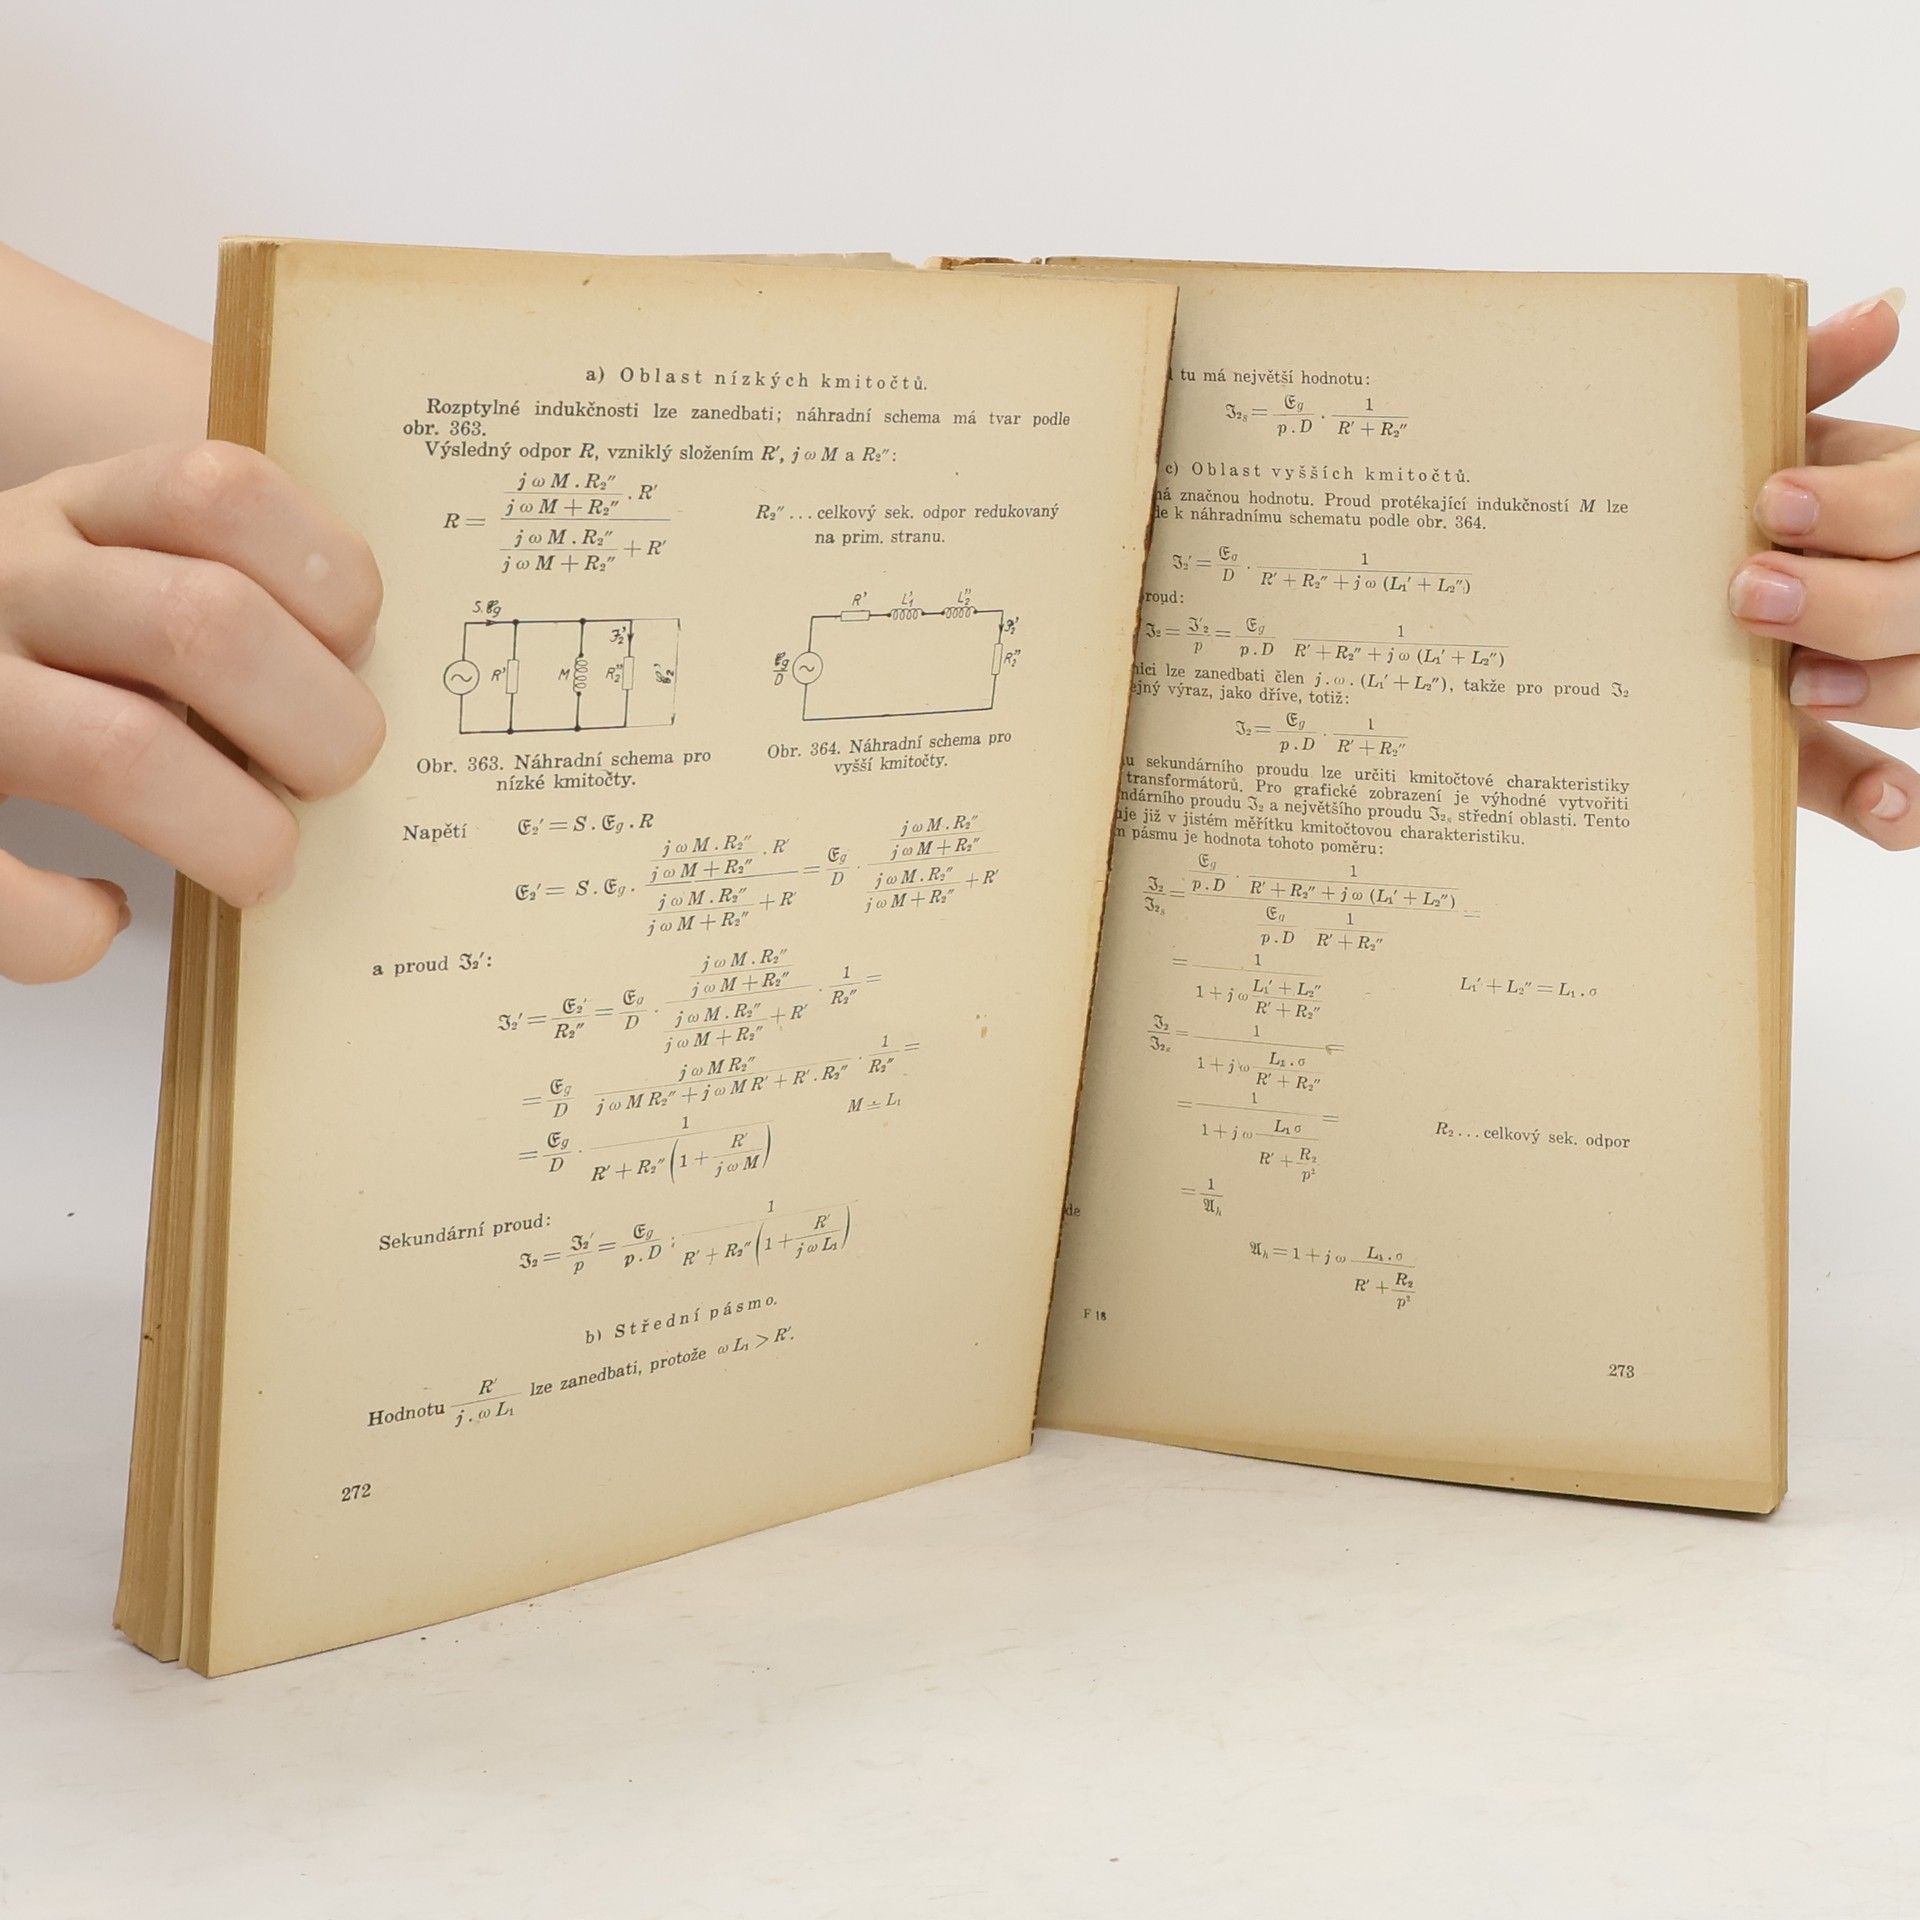 a) Oblast nízkých kmitočtů.
Rozptylné indukčnosti lze zanedbati; náhradní schema má tvar podle
obr. 363.
Výsledný odpor R, vzniklý složením R′, j ω M a R₂″:
R = (j ω M . R₂″ / (j ω M + R₂″) . R′) / (j ω M . R₂″ / (j ω M + R₂″) + R′)
R₂″ ... celkový sek. odpor redukovaný
na prim. stranu.
S.𝔈g R' M R₂″ ℑ₂' 𝔈₂'
𝔈g/D R' L₁' L₂″ ℑ₂' R₂″
Obr. 363. Náhradní schema pro
nízké kmitočty.
Obr. 364. Náhradní schema pro
vyšší kmitočty.
Napětí 𝔈₂′ = S . 𝔈g . R
𝔈₂′ = S . 𝔈g . (j ω M . R₂″ / (j ω M + R₂″) . R′) / (j ω M . R₂″ / (j ω M + R₂″) + R′) = 𝔈g / D . (j ω M . R₂″ / (j ω M + R₂″)) / (j ω M . R₂″ / (j ω M + R₂″) + R′)
a proud ℑ₂′:
ℑ₂′ = 𝔈₂′ / R₂″ = 𝔈g / D . (j ω M . R₂″ / (j ω M + R₂″)) / (j ω M . R₂″ / (j ω M + R₂″) + R′) . 1 / R₂″ =
= 𝔈g / D j ω M R₂″ / (j ω M R₂″ + j ω M R′ + R′ . R₂″) . 1 / R₂″ =
M ≐ L₁
= 𝔈g / D . 1 / (R′ + R₂″ (1 + R′ / j ω M))
Sekundární proud:
ℑ₂ = ℑ₂′ / p = 𝔈g / p . D . 1 / (R′ + R₂″ (1 + R′ / j ω L₁))
b) Střední pásmo.
Hodnotu R′ / j . ω L₁ lze zanedbati, protože ω L₁ > R′.
272
tu má největší hodnotu:
ℑ₂ₛ = 𝔈g / p . D . 1 / (R′ + R₂″)
c) Oblast vyšších kmitočtů.
má značnou hodnotu. Proud protékající indukčností M lze
k náhradnímu schematu podle obr. 364.
ℑ₂′ = 𝔈g / D . 1 / (R′ + R₂″ + j ω (L₁′ + L₂″))
proud:
ℑ₂ = ℑ′₂ / p = 𝔈g / p . D 1 / (R′ + R₂″ + j ω (L₁′ + L₂″))
lze zanedbati člen j . ω . (L₁′ + L₂″), takže pro proud ℑ₂
výraz, jako dříve, totiž:
ℑ₂ = 𝔈g / p . D . 1 / (R′ + R₂″)
sekundárního proudu lze určiti kmitočtové charakteristiky
transformátorů. Pro grafické zobrazení je výhodné vytvořiti
proudu ℑ₂ a největšího proudu ℑ₂ₛ střední oblasti. Tento
již v jistém měřítku kmitočtovou charakteristiku.
pásmu je hodnota tohoto poměru:
ℑ₂ / ℑ₂ₛ = (𝔈g / p . D . 1 / (R′ + R₂″ + j ω (L₁′ + L₂″))) / (𝔈g / p . D 1 / (R′ + R₂″)) =
= 1 / (1 + j ω (L₁′ + L₂″) / (R′ + R₂″))
L₁′ + L₂″ = L₁ . σ
ℑ₂ / ℑ₂ₛ = 1 / (1 + j ω L₁ . σ / (R′ + R₂″)) =
= 1 / (1 + j ω L₁ σ / (R′ + R₂ / p²)) =
R₂ ... celkový sek. odpor
= 1 / 𝔄ₕ
de
𝔄ₕ = 1 + j ω L₁ . σ / (R′ + R₂ / p²)
F 18
273